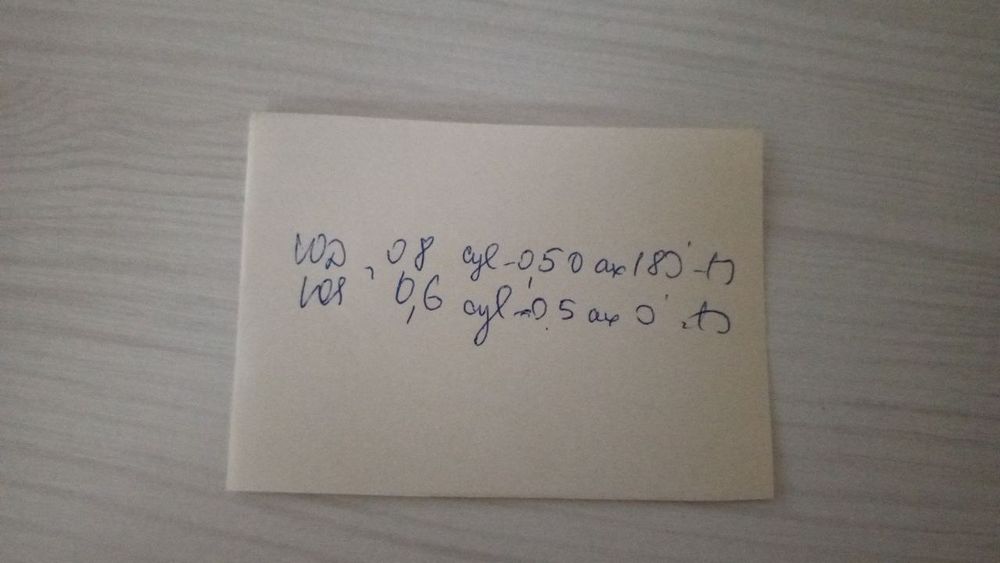 VOD, 0,8 cyl -0,50 ax 180°
VOS 0,6 cyl -0,5 ax 0°